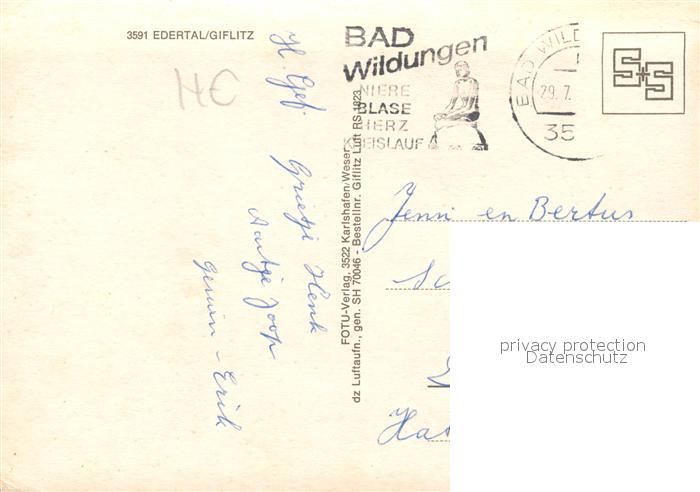 3591 EDERTAL/GIFLITZ
BAD
Wildungen
NIERE
BLASE
HERZ
KREISLAUF
BAD WILD
29.7.
35
S+S
HC
H. Gef.
Grietje Henk
Aartje Joop
Gerwin - Erik
FOTU-Verlag, 3522 Karlshafen/Weser
dz Luftaufn., gen. SH 70046 - Bestellnr. Giflitz Luft RS 1823
Jenni en Bertus
Sc
Hat
privacy protection
Datenschutz